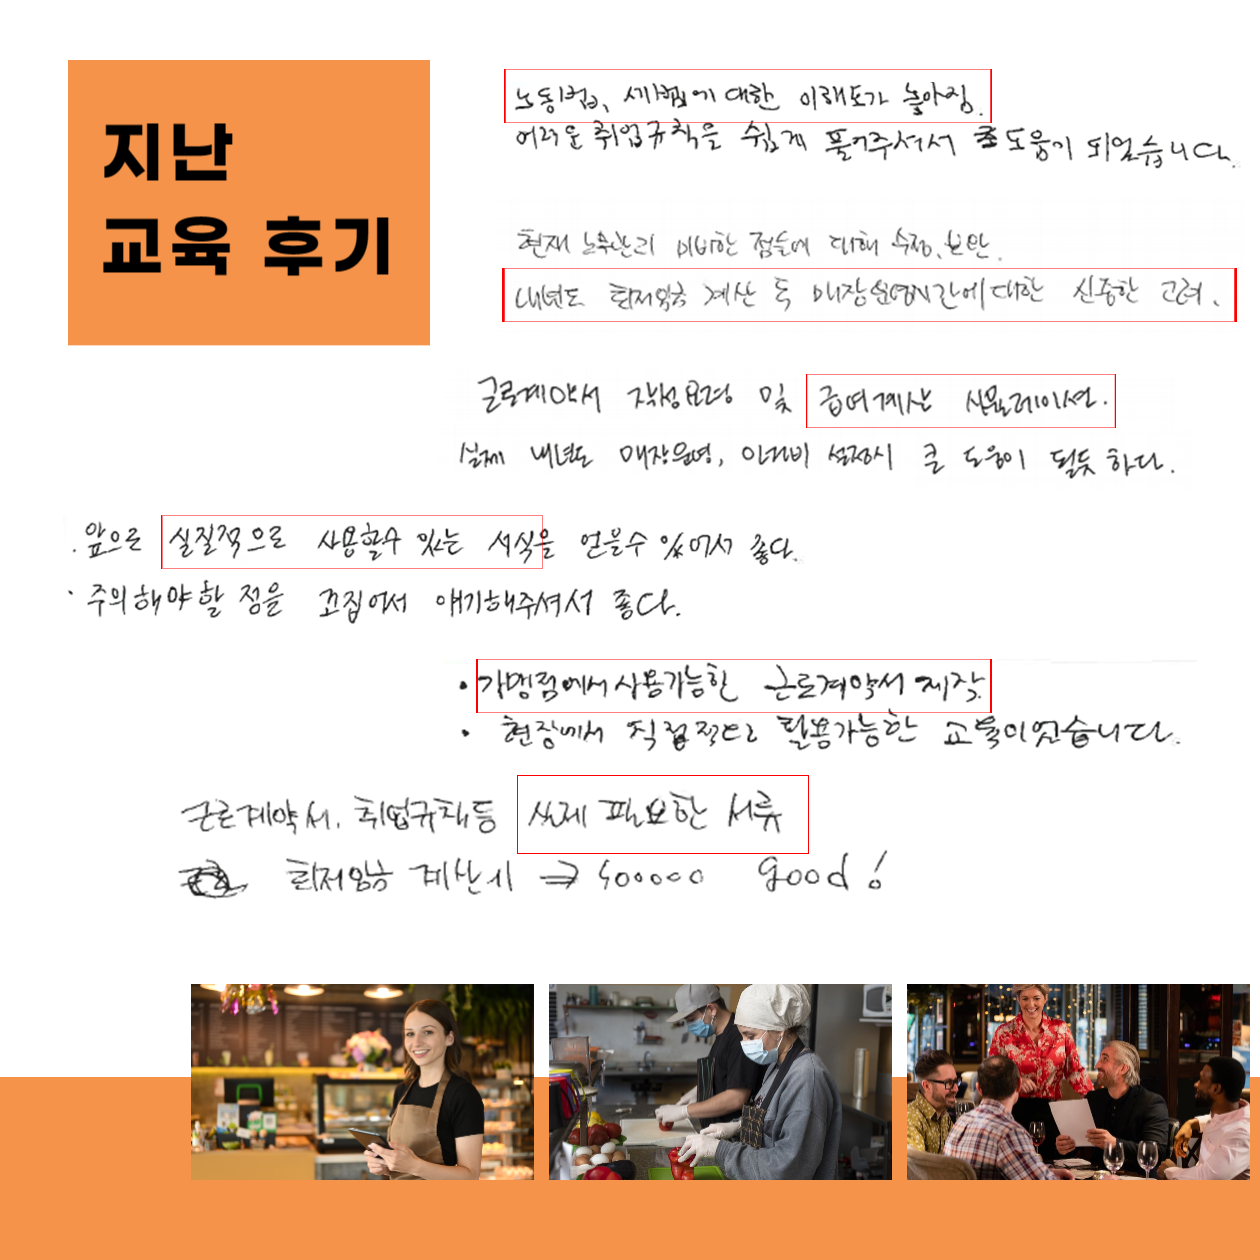 지난
교육 후기
노동법, 세법에 대한 이해도가 높아짐.
어려운 취업규칙을 쉽게 풀어주셔서 큰 도움이 되었습니다.
현재 노무관리 미비한 점들에 대해 수정, 보완.
내년도 최저임금 계산 등 매장운영시간에 대한 신중한 고려.
근로계약서 작성요령 및 급여계산 시뮬레이션.
실제 내년도 매장운영, 인건비 설정시 큰 도움이 될듯 하다.
. 앞으로 실질적으로 사용할수 있는 서식을 얻을수 있어서 좋다.
· 주의해야할 점을 꼬집어서 얘기해주셔서 좋다.
• 가맹점에서 사용가능한 근로계약서 제작.
• 현장에서 직접적으로 활용가능한 교육이었습니다.
근로계약서, 취업규칙등 실제 필요한 서류
최저임금 계산시 ⇒ good!